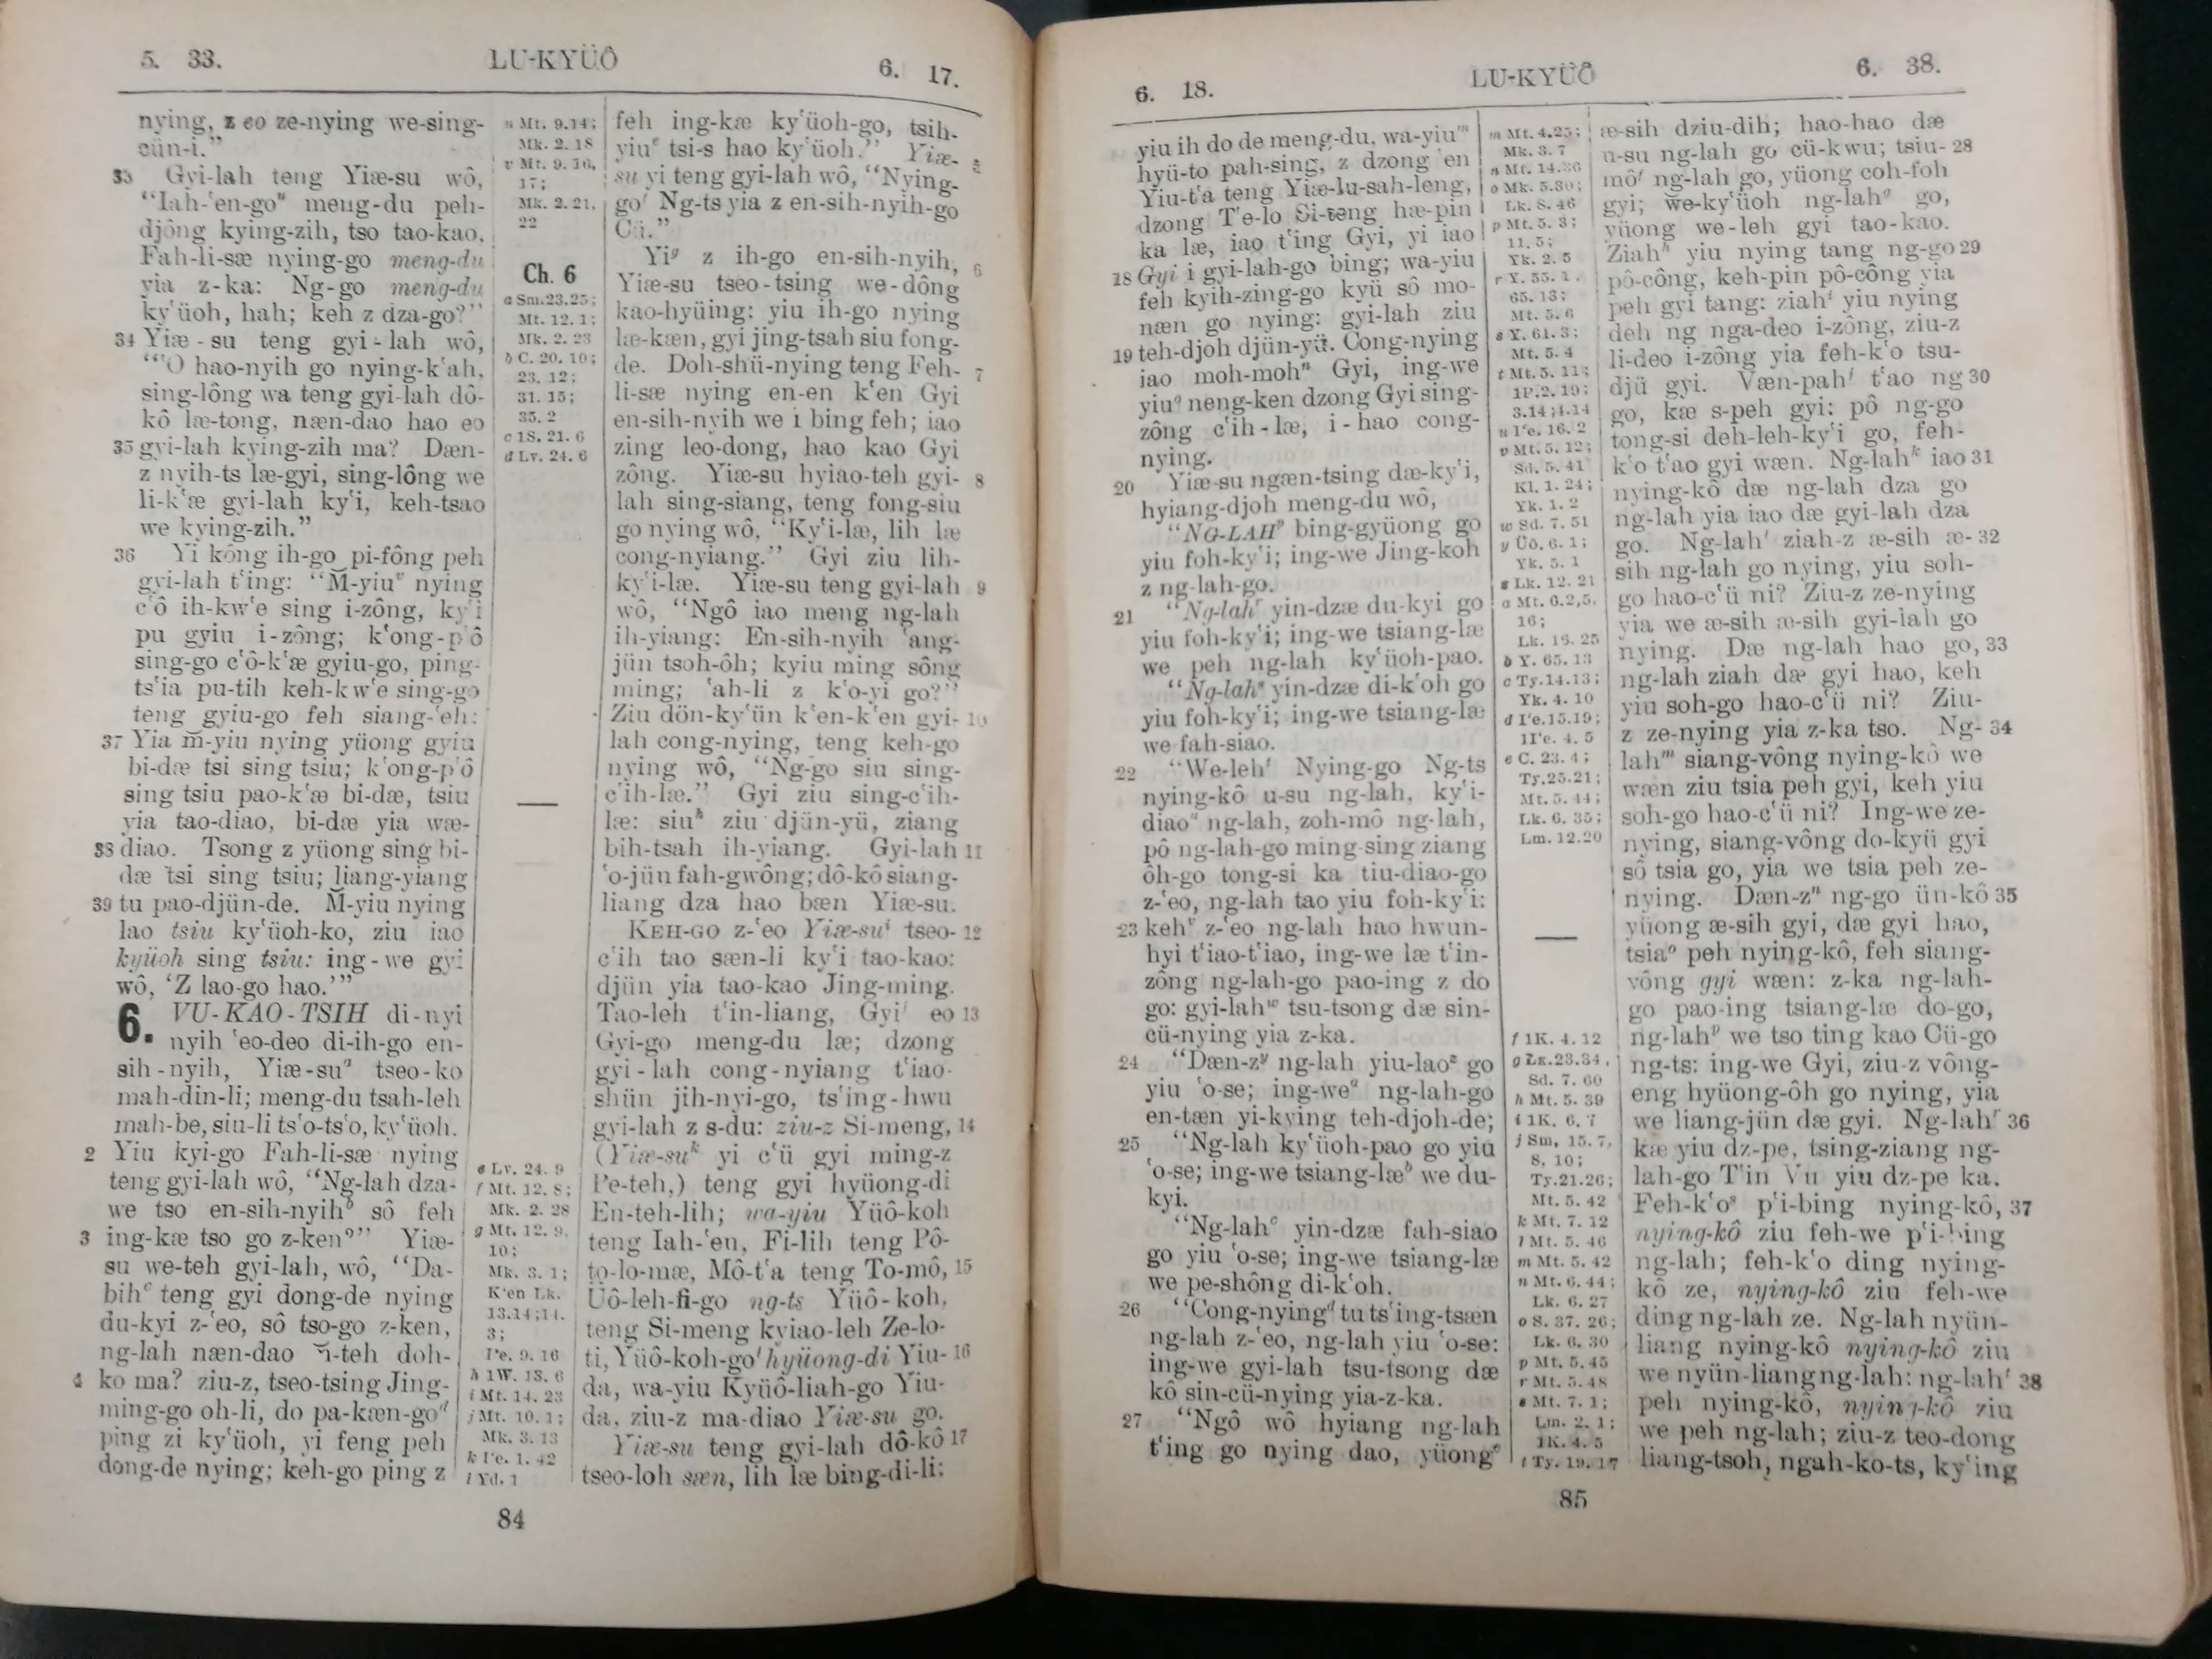 5. 33.
LU-KYÜÔ
6. 17.
nying, z eo ze-nying we-sing-
cün-i."
33 Gyi-lah teng Yiæ-su wô,
"Iah-ʻen-go" meng-du peh-
djông kying-zih, tso tao-kao,
Fah-li-sæ nying-go meng-du
yia z-ka: Ng-go meng-du
kyʻüoh, hah; keh z dza-go?"
34 Yiæ-su teng gyi-lah wô,
"ʻO hao-nyih go nying-kʻah,
sing-lông wa teng gyi-lah dô-
kô læ-tong, næn-dao hao eo
35 gyi-lah kying-zih ma? Dæn-
z nyih-ts læ-gyi, sing-lông we
li-kʻæ gyi-lah kyʻi, keh-tsao
we kying-zih."
36 Yi kông ih-go pi-fông peh
gyi-lah tʻing: "M̆-yiuᵛ nying
cʻô ih-kwʻe sing i-zông, kyʻi
pu gyiu i-zông; kʻong-pʻô
sing-go cʻô-kʻæ gyiu-go, ping-
tsʻia pu-tih keh-kwʻe sing-go
teng gyiu-go feh siang-ʻeh:
37 Yia m̆-yiu nying yüong gyiu
bi-dæ tsi sing tsiu; kʻong-pʻô
sing tsiu pao-kʻæ bi-dæ, tsiu
yia tao-diao, bi-dæ yia wæ-
38 diao. Tsong z yüong sing bi-
dæ tsi sing tsiu; liang-yiang
39 tu pao-djün-de. M̆-yiu nying
lao tsiu kyʻüoh-ko, ziu iao
kyüoh sing tsiu: ing-we gyi
wô, ʻZ lao-go hao.ʼ"
6. VU-KAO-TSIH di-nyi
nyih ʻeo-deo di-ih-go en-
sih-nyih, Yiæ-suᵃ tseo-ko
mah-din-li; meng-du tsah-leh
mah-be, siu-li tsʻo-tsʻo, kyʻüoh.
2 Yiu kyi-go Fah-li-sæ nying
teng gyi-lah wô, "Ng-lah dza-
we tso en-sih-nyihᵇ sô feh
3 ing-kæ tso go z-kenᵓ?" Yiæ-
su we-teh gyi-lah, wô, "Da-
bihᶜ teng gyi dong-de nying
du-kyi z-ʻeo, sô tso-go z-ken,
ng-lah næn-dao m̆-teh doh-
4 ko ma? ziu-z, tseo-tsing Jing-
ming-go oh-li, do pa-kæn-goᵈ
ping zi kyʻüoh, yi feng peh
dong-de nying; keh-go ping z
u Mt. 9.14;
Mk. 2. 18
v Mt. 9. 16,
17;
Mk. 2. 21,
22
Ch. 6
a Sm.23.25;
Mt. 12. 1;
Mk. 2. 23
b C. 20. 10;
23. 12;
31. 15;
35. 2
c 1S. 21. 6
d Lv. 24. 6
e Lv. 24. 9
f Mt. 12. 8;
Mk. 2. 28
g Mt. 12. 9,
10;
Mk. 3. 1;
Kʻen Lk.
13.14;14.
3;
Iʻe. 9. 16
h 1W. 13. 6
i Mt. 14. 23
j Mt. 10. 1;
Mk. 3. 13
k Iʻe. 1. 42
l Yd. 1
feh ing-kæ kyʻüoh-go, tsih-
yiuᵉ tsi-s hao kyʻüoh." Yiæ- 5
su yi teng gyi-lah wô, "Nying-
goᶠ Ng-ts yia z en-sih-nyih-go
Cü."
Yiᵍ z ih-go en-sih-nyih, 6
Yiæ-su tseo-tsing we-dông
kao-hyüing: yiu ih-go nying
læ-kæn, gyi jing-tsah siu fong-
de. Doh-shü-nying teng Feh- 7
li-sæ nying en-en kʻen Gyi
en-sih-nyih we i bing feh; iao
zing leo-dong, hao kao Gyi
zông. Yiæ-su hyiao-teh gyi- 8
lah sing-siang, teng fong-siu
go nying wô, "Kyʻi-læ, lih læ
cong-nyiang." Gyi ziu lih-
kyʻi-læ. Yiæ-su teng gyi-lah 9
wô, "Ngô iao meng ng-lah
ih-yiang: En-sih-nyih ʻang-
jün tsoh-ôh; kyiu ming sông
ming; ʻah-li z kʻo-yi go?"
Ziu dön-kyʻün kʻen-kʻen gyi- 10
lah cong-nying, teng keh-go
nying wô, "Ng-go siu sing-
cʻih-læ." Gyi ziu sing-cʻih-
læ: siuʰ ziu djün-yü, ziang
bih-tsah ih-yiang. Gyi-lah 11
ʻo-jün fah-gwông; dô-kô siang-
liang dza hao bæn Yiæ-su.
KEH-GO z-ʻeo Yiæ-suⁱ tseo- 12
cʻih tao sæn-li kyʻi tao-kao:
djün yia tao-kao Jing-ming.
Tao-leh tʻin-liang, Gyiʲ eo 13
Gyi-go meng-du læ; dzong
gyi-lah cong-nyiang tʻiao-
shün jih-nyi-go, tsʻing-hwu
gyi-lah z s-du: ziu-z Si-meng, 14
(Yiæ-suᵏ yi cʻü gyi ming-z
Pe-teh,) teng gyi hyüong-di
En-teh-lih; wa-yiu Yüô-koh
teng Iah-ʻen, Fi-lih teng Pô-
to-lo-mæ, Mô-tʻa teng To-mô, 15
Üô-leh-fi-go ng-ts Yüô-koh,
teng Si-meng kyiao-leh Ze-lo-
ti, Yüô-koh-goˡ hyüong-di Yiu- 16
da, wa-yiu Kyüô-liah-go Yiu-
da, ziu-z ma-diao Yiæ-su go.
Yiæ-su teng gyi-lah dô-kô 17
tseo-loh sæn, lih læ bing-di-li:
84
6. 18.
LU-KYÜÔ
6. 38.
yiu ih do de meng-du, wa-yiuᵐ
hyü-to pah-sing, z dzong en
Yiu-tʻa teng Yiæ-lu-sah-leng,
dzong Tʻe-lo Si-teng hæ-pin
ka læ, iao tʻing Gyi, yi iao
18 Gyi i gyi-lah-go bing; wa-yiu
feh kyih-zing-go kyü sô mo-
næn go nying: gyi-lah ziu
19 teh-djoh djün-yü. Cong-nying
iao moh-mohⁿ Gyi, ing-we
yiuᵒ neng-ken dzong Gyi sing-
zông cʻih-læ, i-hao cong-
nying.
20 Yiæ-su ngæn-tsing dæ-kyʻi,
hyiang-djoh meng-du wô,
"NG-LAHᵖ bing-gyüong go
yiu foh-kyʻi; ing-we Jing-koh
z ng-lah-go.
21 "Ng-lahʳ yin-dzæ du-kyi go
yiu foh-kyʻi; ing-we tsiang-læ
we peh ng-lah kyʻüoh-pao.
"Ng-lahˢ yin-dzæ di-kʻoh go
yiu foh-kyʻi; ing-we tsiang-læ
we fah-siao.
22 "We-lehᵗ Nying-go Ng-ts
nying-kô u-su ng-lah, kyʻi-
diaoᵘ ng-lah, zoh-mô ng-lah,
pô ng-lah-go ming-sing ziang
ôh-go tong-si ka tiu-diao-go
z-ʻeo, ng-lah tao yiu foh-kyʻi:
23 kehᵛ z-ʻeo ng-lah hao hwun-
hyi tʻiao-tʻiao, ing-we læ tʻin-
zông ng-lah-go pao-ing z do
go: gyi-lahʷ tsu-tsong dæ sin-
cü-nying yia z-ka.
24 "Dæn-zʸ ng-lah yiu-laoᶻ go
yiu ʻo-se; ing-weᵃ ng-lah-go
en-tæn yi-kying teh-djoh-de;
25 "Ng-lah kyʻüoh-pao go yiu
ʻo-se; ing-we tsiang-læᵇ we du-
kyi.
"Ng-lahᶜ yin-dzæ fah-siao
go yiu ʻo-se; ing-we tsiang-læ
we pe-shông di-kʻoh.
26 "Cong-nyingᵈ tu tsʻing-tsæn
ng-lah z-ʻeo, ng-lah yiu ʻo-se:
ing-we gyi-lah tsu-tsong dæ
kô sin-cü-nying yia-z-ka.
27 "Ngô wô hyiang ng-lah
tʻing go nying dao, yüongᵉ
m Mt. 4.25;
Mk. 3. 7
n Mt. 14.36
o Mk. 5.30;
Lk. 8. 46
p Mt. 5. 3;
11. 5;
Yk. 2. 5
r Y. 55. 1.
65. 13;
Mt. 5. 6
s Y. 61. 3;
Mt. 5. 4
t Mt. 5. 11;
1P. 2. 19;
3.14;4.14
u Iʻe. 16. 2
v Mt. 5. 12;
Sd. 5. 41
Kl. 1. 24;
Yk. 1. 2
w Sd. 7. 51
y Üô. 6. 1;
Yk. 5. 1
z Lk. 12. 21
a Mt. 6.2,5,
16;
Lk. 16. 25
b Y. 65. 13
c Ty.14.13;
Yk. 4. 10
d Iʻe.15.19;
1Iʻe. 4. 5
e C. 23. 4;
Ty.25.21;
Mt. 5. 44;
Lk. 6. 35;
Lm. 12.20
f 1K. 4. 12
g Lk.23.34.
Sd. 7. 60
h Mt. 5. 39
i 1K. 6. 7
j Sm, 15. 7,
8, 10;
Ty.21.26;
Mt. 5. 42
k Mt. 7. 12
l Mt. 5. 46
m Mt. 5. 42
n Mt. 6.44;
Lk. 6. 27
o S. 37. 26;
Lk. 6. 30
p Mt. 5. 45
r Mt. 5. 48
s Mt. 7. 1;
Lm. 2. 1;
1K. 4. 5
t Ty. 19. 17
æ-sih dziu-dih; hao-hao dæ
u-su ng-lah go cü-kwu; tsiu- 28
môᶠ ng-lah go, yüong coh-foh
gyi; we-kyʻüoh ng-lahᵍ go,
yüong we-leh gyi tao-kao.
Ziahʰ yiu nying tang ng-go 29
pô-công, keh-pin pô-công yia
peh gyi tang: ziahⁱ yiu nying
deh ng nga-deo i-zông, ziu-z
li-deo i-zông yia feh-kʻo tsu-
djü gyi. Væn-pahʲ tʻao ng 30
go, kæ s-peh gyi: pô ng-go
tong-si deh-leh-kyʻi go, feh-
kʻo tʻao gyi wæn. Ng-lahᵏ iao 31
nying-kô dæ ng-lah dza go
ng-lah yia iao dæ gyi-lah dza
go. Ng-lahˡ ziah-z æ-sih æ- 32
sih ng-lah go nying, yiu soh-
go hao-cʻü ni? Ziu-z ze-nying
yia we æ-sih æ-sih gyi-lah go
nying. Dæ ng-lah hao go, 33
ng-lah ziah dæ gyi hao, keh
yiu soh-go hao-cʻü ni? Ziu-
z ze-nying yia z-ka tso. Ng- 34
lahᵐ siang-vông nying-kô we
wæn ziu tsia peh gyi, keh yiu
soh-go hao-cʻü ni? Ing-we ze-
nying, siang-vông do-kyü gyi
sô tsia go, yia we tsia peh ze-
nying. Dæn-zⁿ ng-go ün-kô 35
yüong æ-sih gyi, dæ gyi hao,
tsiaᵒ peh nying-kô, feh siang-
vông gyi wæn: z-ka ng-lah-
go pao-ing tsiang-læ do-go,
ng-lahᵖ we tso ting kao Cü-go
ng-ts: ing-we Gyi, ziu-z vông-
eng hyüong-ôh go nying, yia
we liang-jün dæ gyi. Ng-lahʳ 36
kæ yiu dz-pe, tsing-ziang ng-
lah-go Tʻin Vu yiu dz-pe ka.
Feh-kʻoˢ pʻi-bing nying-kô, 37
nying-kô ziu feh-we pʻi-bing
ng-lah; feh-kʻo ding nying-
kô ze, nying-kô ziu feh-we
ding ng-lah ze. Ng-lah nyün-
liang nying-kô nying-kô ziu
we nyün-liang ng-lah: ng-lahᵗ 38
peh nying-kô, nying-kô ziu
we peh ng-lah; ziu-z teo-dong
liang-tsoh, ngah-ko-ts, kyʻing
85